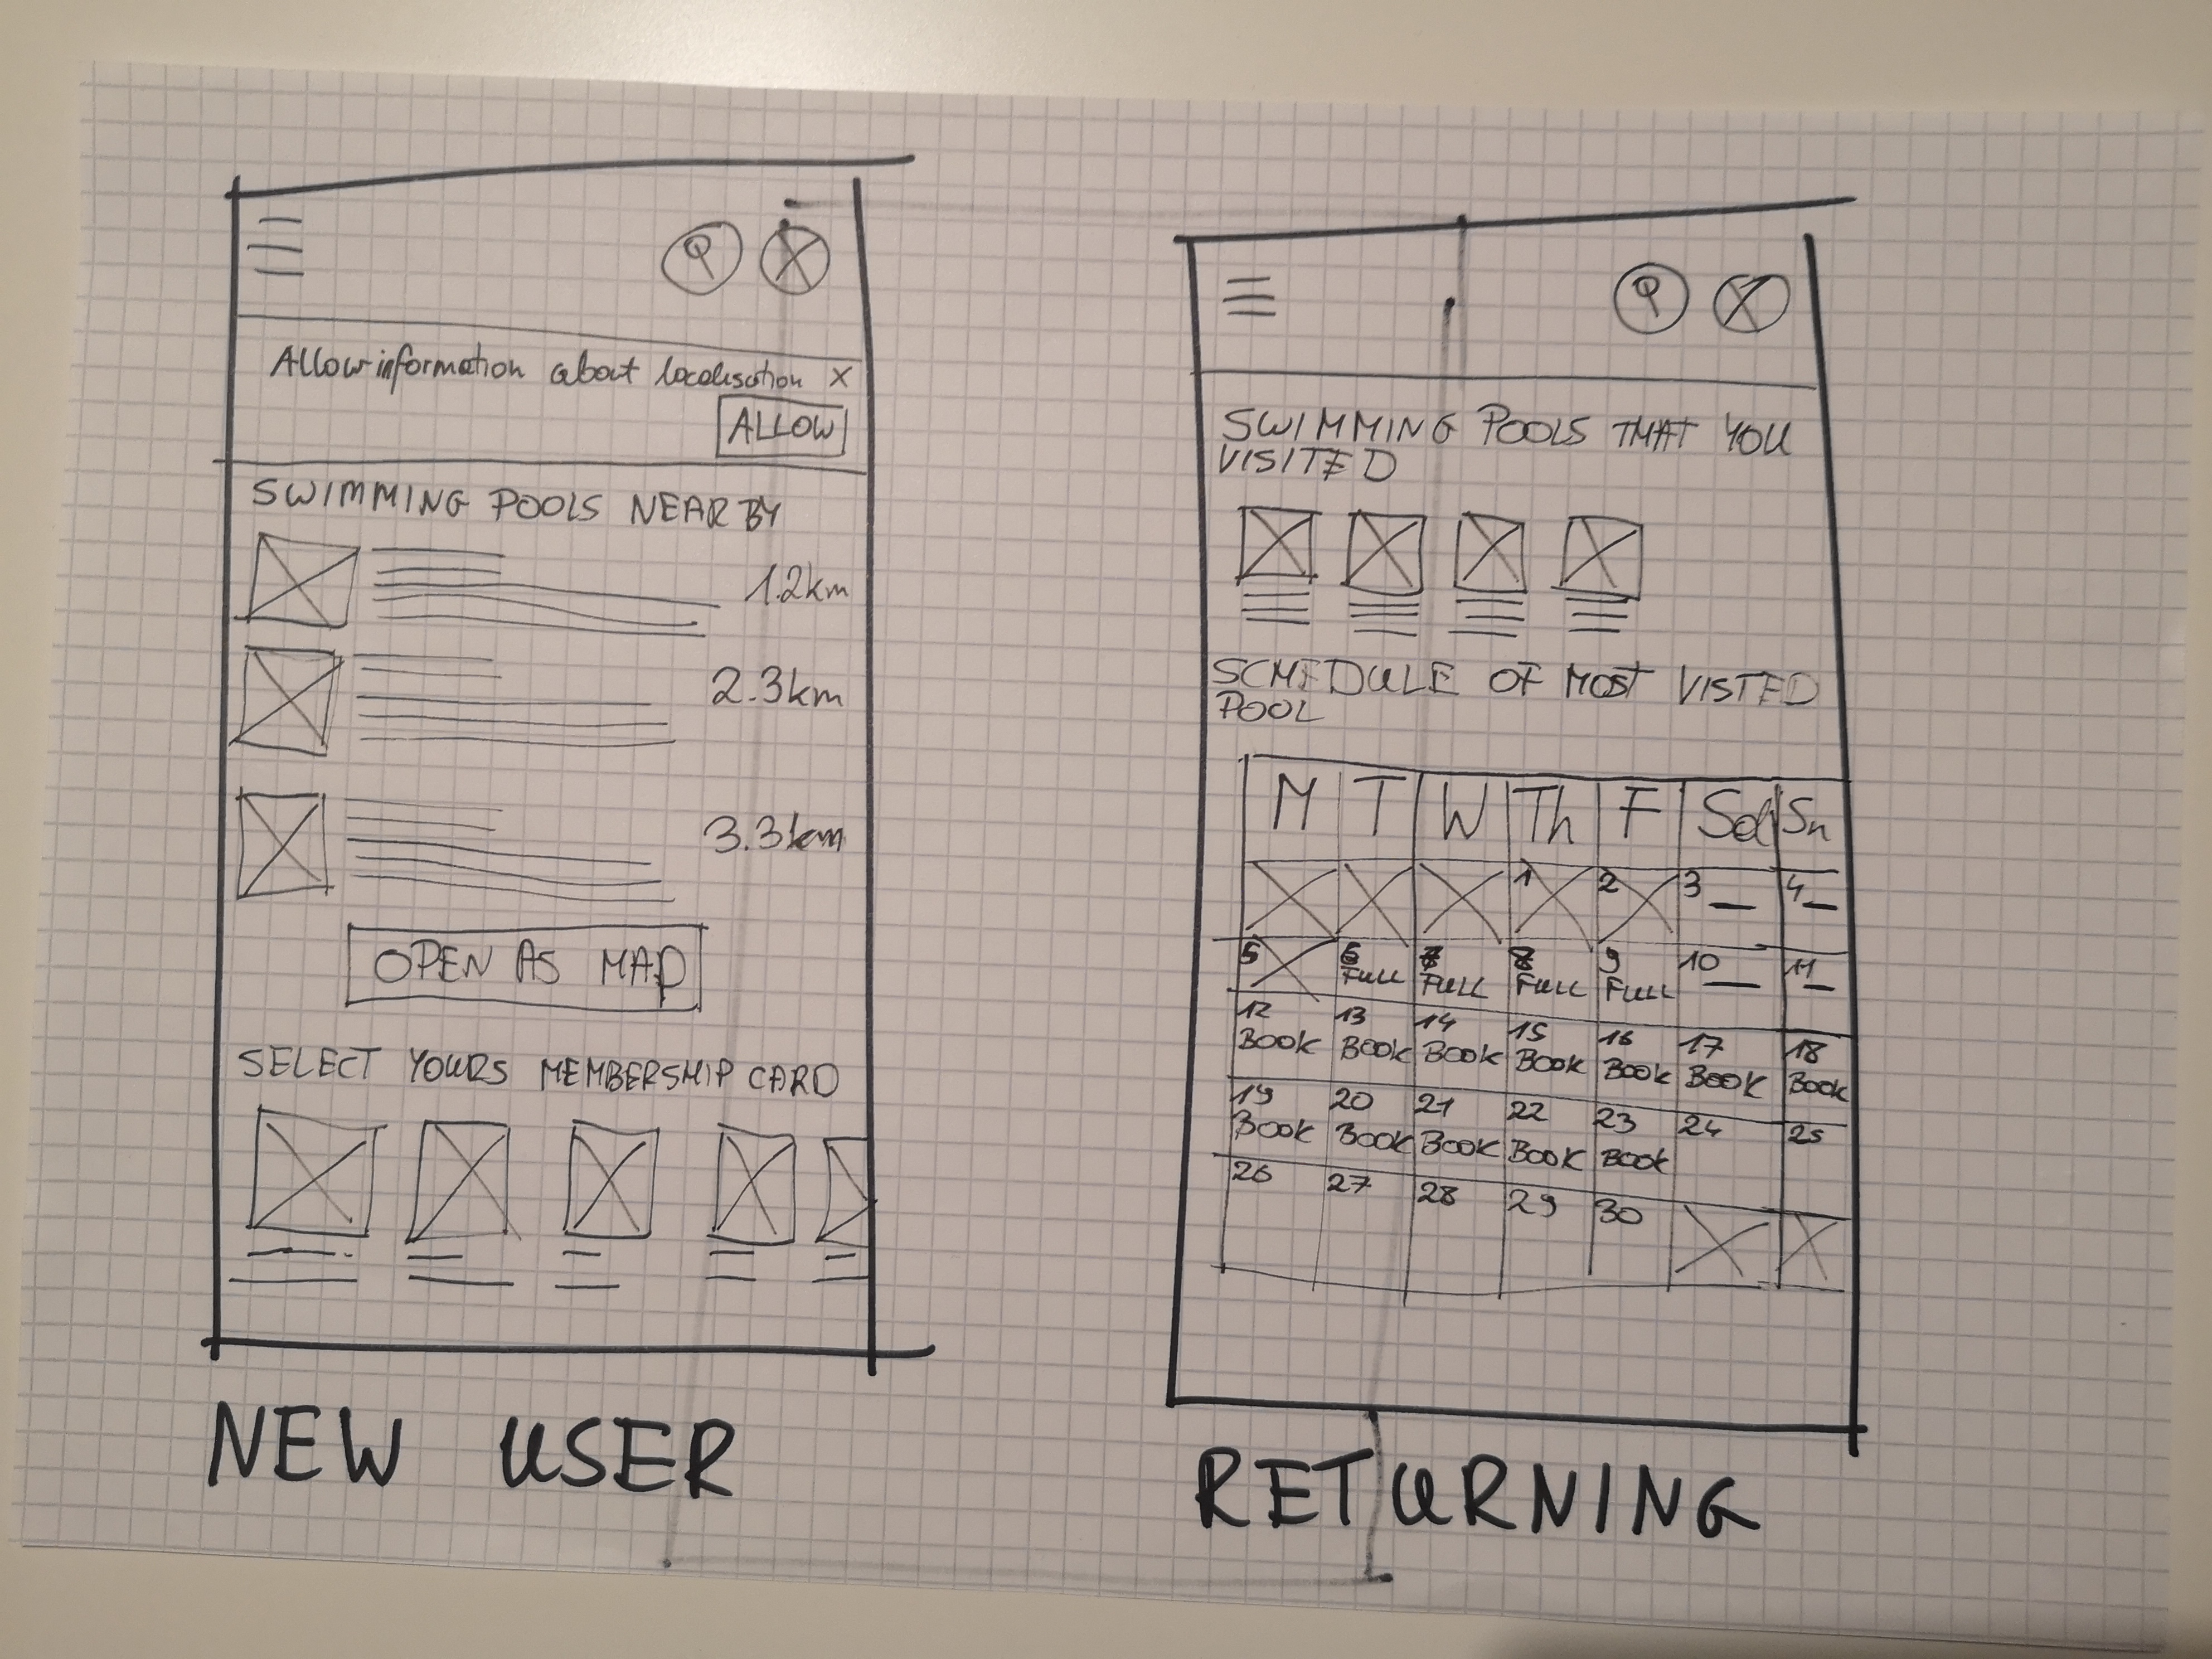 Allow information about localisation X
ALLOW
SWIMMING POOLS NEARBY
1.2km
2.3km
3.3km
OPEN AS MAP
SELECT YOURS MEMBERSHIP CARD
NEW USER
SWIMMING POOLS THAT YOU
VISITED
SCHEDULE OF MOST VISTED
POOL
M T W Th F Sa Sn
1 2 3 4
5 6 7 8 9 10 11
FULL FULL FULL FULL
12 13 14 15 16 17 18
BOOK BOOK BOOK BOOK BOOK BOOK BOOK
19 20 21 22 23 24 25
BOOK BOOK BOOK BOOK BOOK
26 27 28 29 30
RETURNING